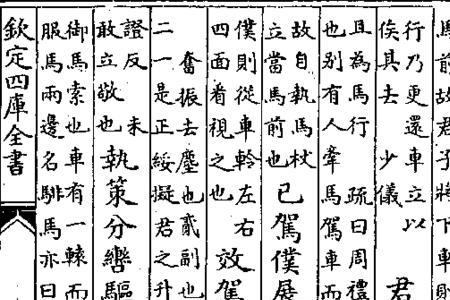 馬前故君子將下車則
行乃更還車立以
俟其去 少儀
君
且為馬行 疏曰周禮
也别有人牽馬駕車而
故自執馬杖
立當馬前也
已駕僕展
僕則從車軨左右
四面看視之也
效駕
奮振去塵也貳副也
二一是正綏擬君之升
證反 未
敢立敬也
執策分轡驅
御馬索也車有一轅而
服馬兩邊名騑馬亦曰
欽定四庫全書